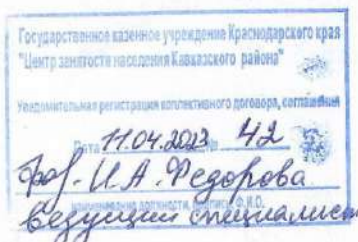 Государственное казенное учреждение Краснодарского края
"Центр занятости населения Кавказского района"
Уведомительная регистрация коллективного договора, соглашения
Дата 11.04.2023 № 42
И.А. Федорова
ведущий специалист
наименование должности, подпись, Ф.И.О.